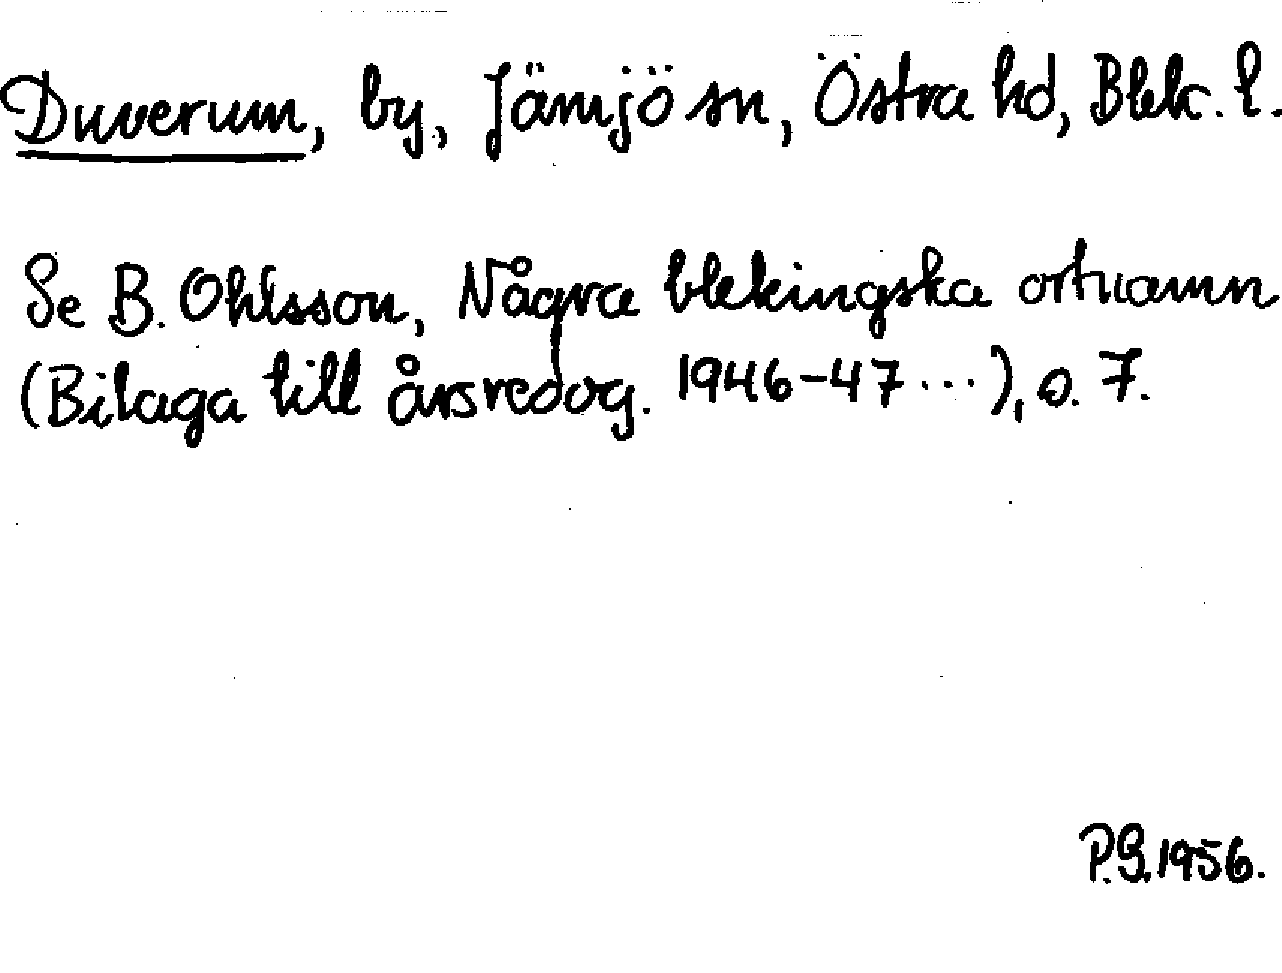 Duverum, by, Jämjö sn, Östra hd, Blek. l.
Se B. Ohlsson, Några blekingska ortnamn
(Bilaga till årsredog. 1946-47 ...), s. 7.
P.G. 1956.